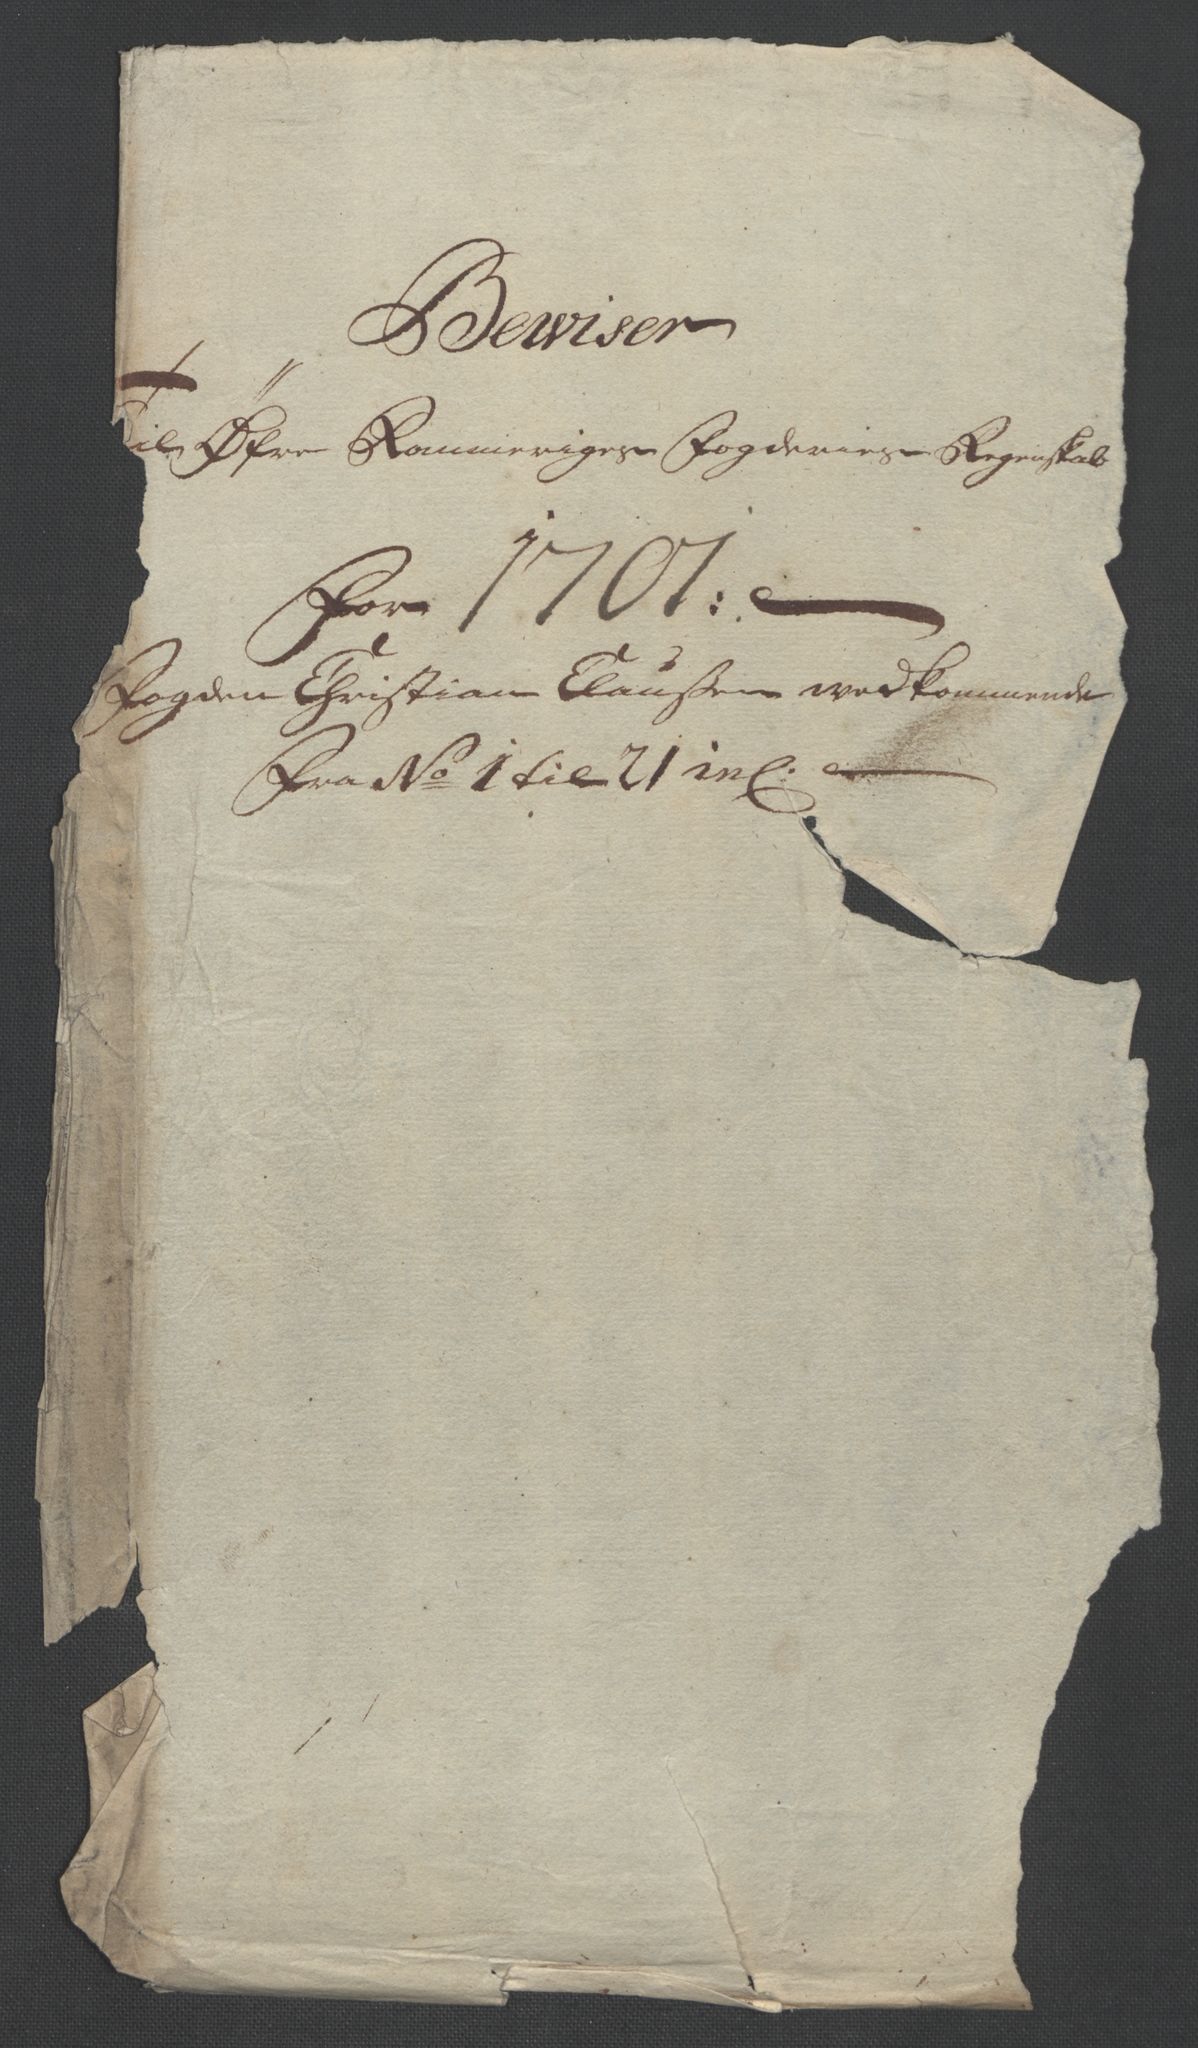 Bewiser
til Øfre Rommeriges Fogderies Regenskab
For 1701:
Fogden Christian Claussen wedkommende
Fra No 1 til 21 incl: